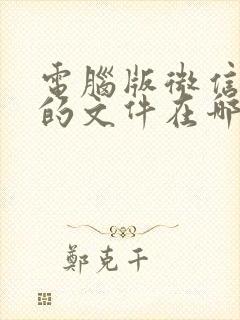 電腦版微信
的文件在哪
鄭克干